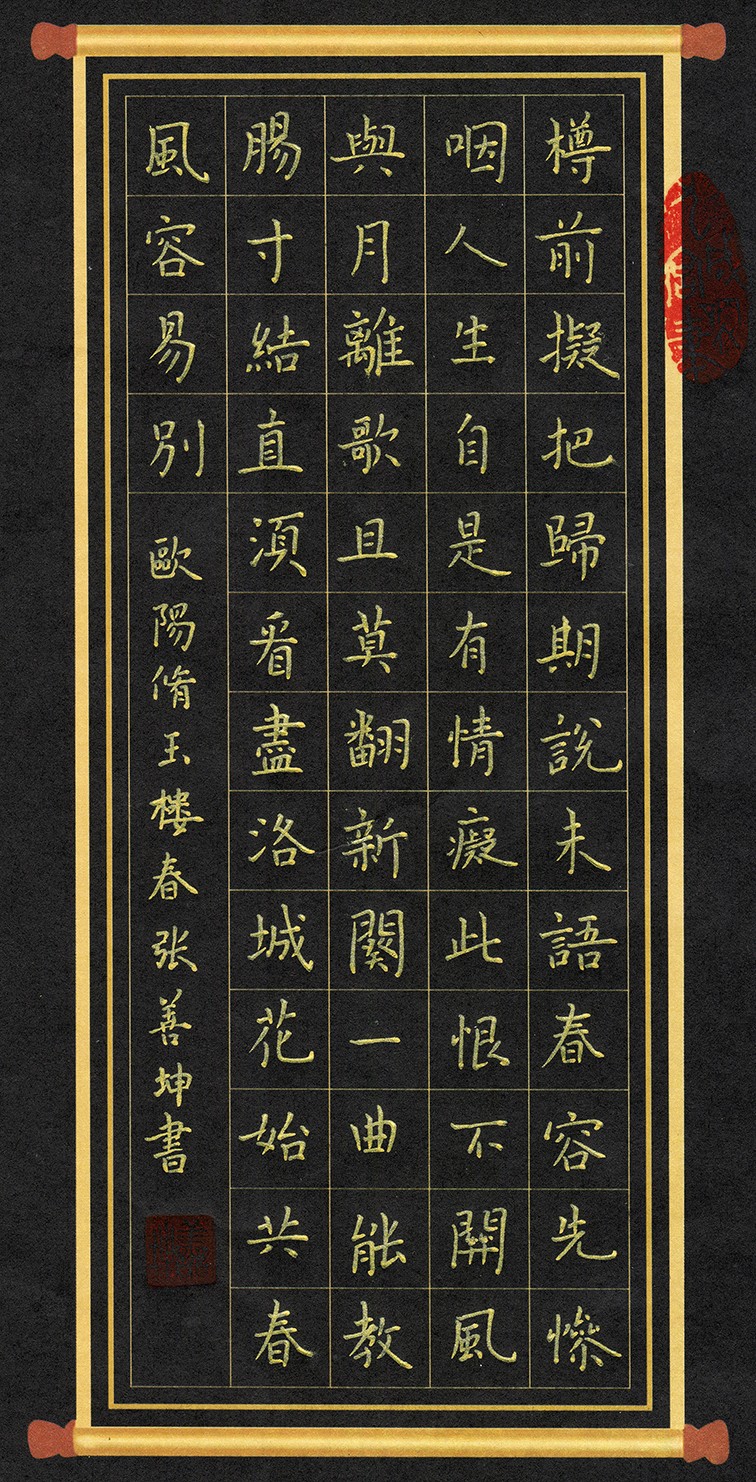 樽前擬把歸期說未語春容先慘
咽人生自是有情癡此恨不關風
與月離歌且莫翻新闋一曲能教
腸寸結直須看盡洛城花始共春
風容易別
歐陽脩玉樓春张善坤書